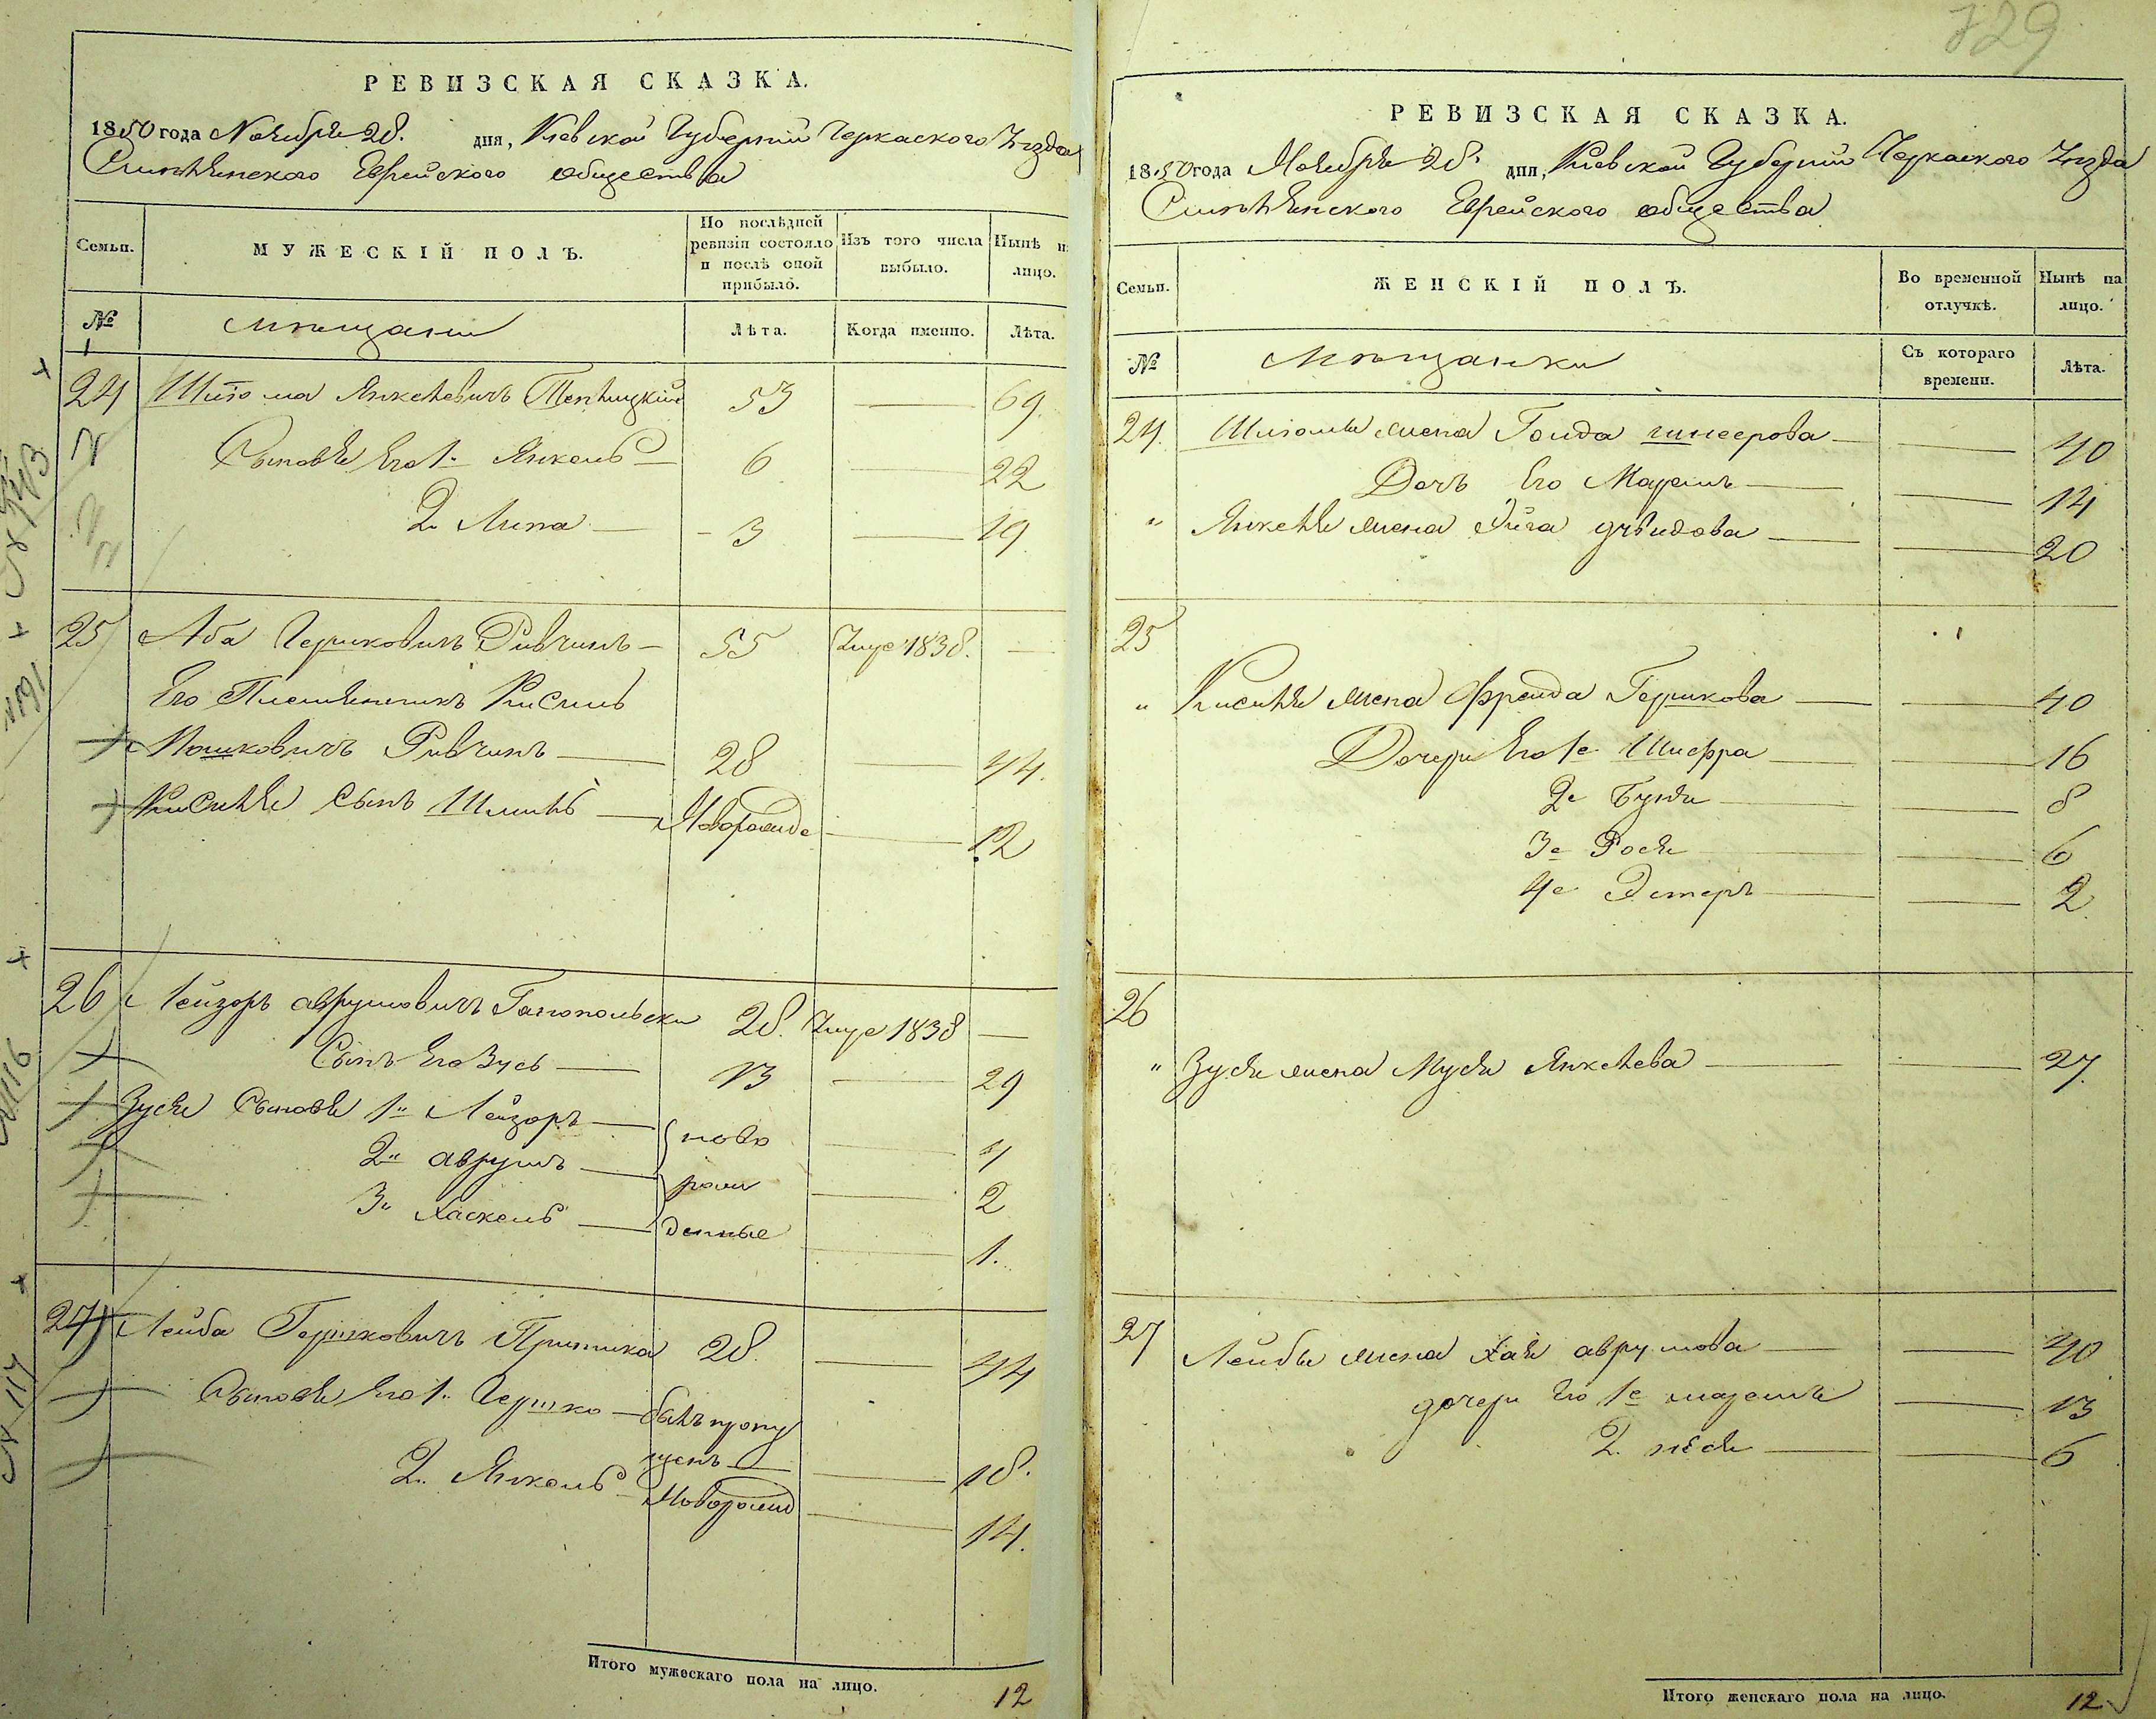 РЕВИЗСКАЯ СКАЗКА.
1850 года Ноября 28. дня, Киевской Губернии Черкаского Уезда
Смелянского Еврейского общества
Семьи. МУЖЕСКІЙ ПОЛЪ. По послѣдней ревизіи состояло и послѣ оной прибыло. Изъ того числа выбыло. Нынѣ на лицо.
№ мещани Лѣта. Когда именно. Лѣта.
1
24 Янкелевичъ 53 69.
Сыновя Его 1. Янкель 6 22
2. Липа 3 19
25 Аба Гершковичъ Ривчинъ 55 1838.
Его Племянникъ Кисиль
Мошковичъ Ривчинъ 28 44.
Кисиля Сынъ Шмиль Новорожде 12
26 Лейзоръ Аврумовичъ Ганопольски 28. 1838
Сынъ Его Зусь 13 29
Зуся Сыновя 1й Лейзоръ ново 4
2й Аврумъ рож 2
3й Хаскель денные 1.
27 Лейба Гершковичъ Притика 28. 44
Сыновя Его 1. Гершко былъ пропу
щенъ 18.
2. Янкель Новорожд 14.
Итого мужескаго пола на лицо. 12
N 116
N 117
729
РЕВИЗСКАЯ СКАЗКА.
1850 года Ноября 28. дня, Киевской Губернии Черкаского Уезда
Смелянского Еврейского общества
Семьи. ЖЕНСКІЙ ПОЛЪ. Во временной отлучкѣ. Нынѣ на лицо.
№ Мещанки Съ котораго времени. Лѣта.
24. жена Голда 40
Дочь Его Маремъ 14
" Янкеля жена 20
25
" Кисиля жена Фрейда Гершкова 40
Дочери Его 1е Шифра 16
2е Буня 8
3е Рося 6
4е Эстеръ 2
26
" Зуся жена Муся Янкелева 27.
27 Лейбы жена Хая Аврумова 40
дочери Его 1е маремъ 13
2. песя 6
Итого женскаго пола на лицо. 12